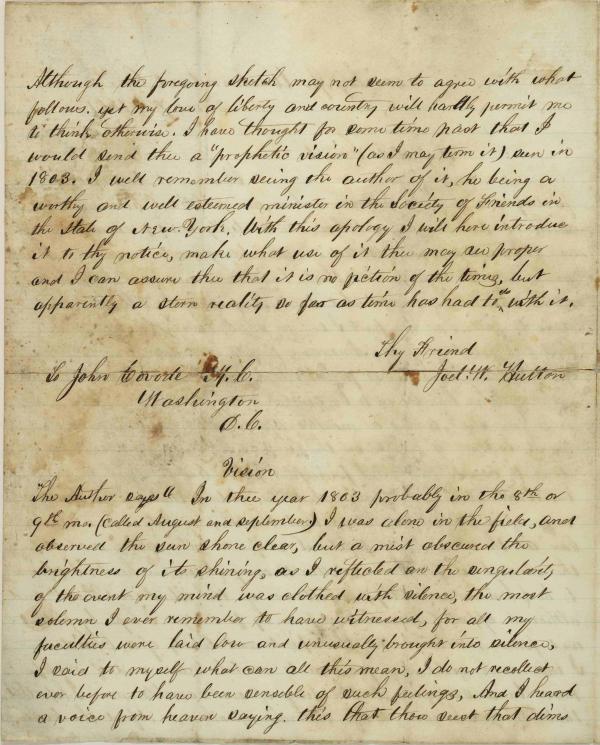 Although the foregoing sketch may not seem to agree with what
follows. yet my love of liberty and country will hardly permit me
to think otherwise. I have thought for some time past that I
would send thee a "prophetic vision" (as I may term it) seen in
1803. I well remember seeing the author of it, he being a
worthy and well esteemed minister in the Society of Friends in
the State of New-York. With this apology I will here introduce
it to thy notice, make what use of it thee may see proper
and I can assure thee that it is no fiction of the times, but
apparently a stern reality so far as time has had to do with it.
Thy Friend
To John Covode M.C. Joel. W. Hutton
Washington
D.C.
Vision
"The Author says" In thee year 1803 probably in the 8th or
9th mo. (called August and September) I was alone in the field, and
observed the sun shone clear, but a mist obscured the
brightness of its shining, as I reflected on the singularity
of the event my mind was clothed with silence, the most
solemn I ever remember to have witnessed, for all my
faculties were laid low and unusually brought into silence,
I said to myself what can all this mean, I do not recollect
ever before to have been sensible of such feelings, And I heard
a voice from heaven saying. this that thou seest that dims